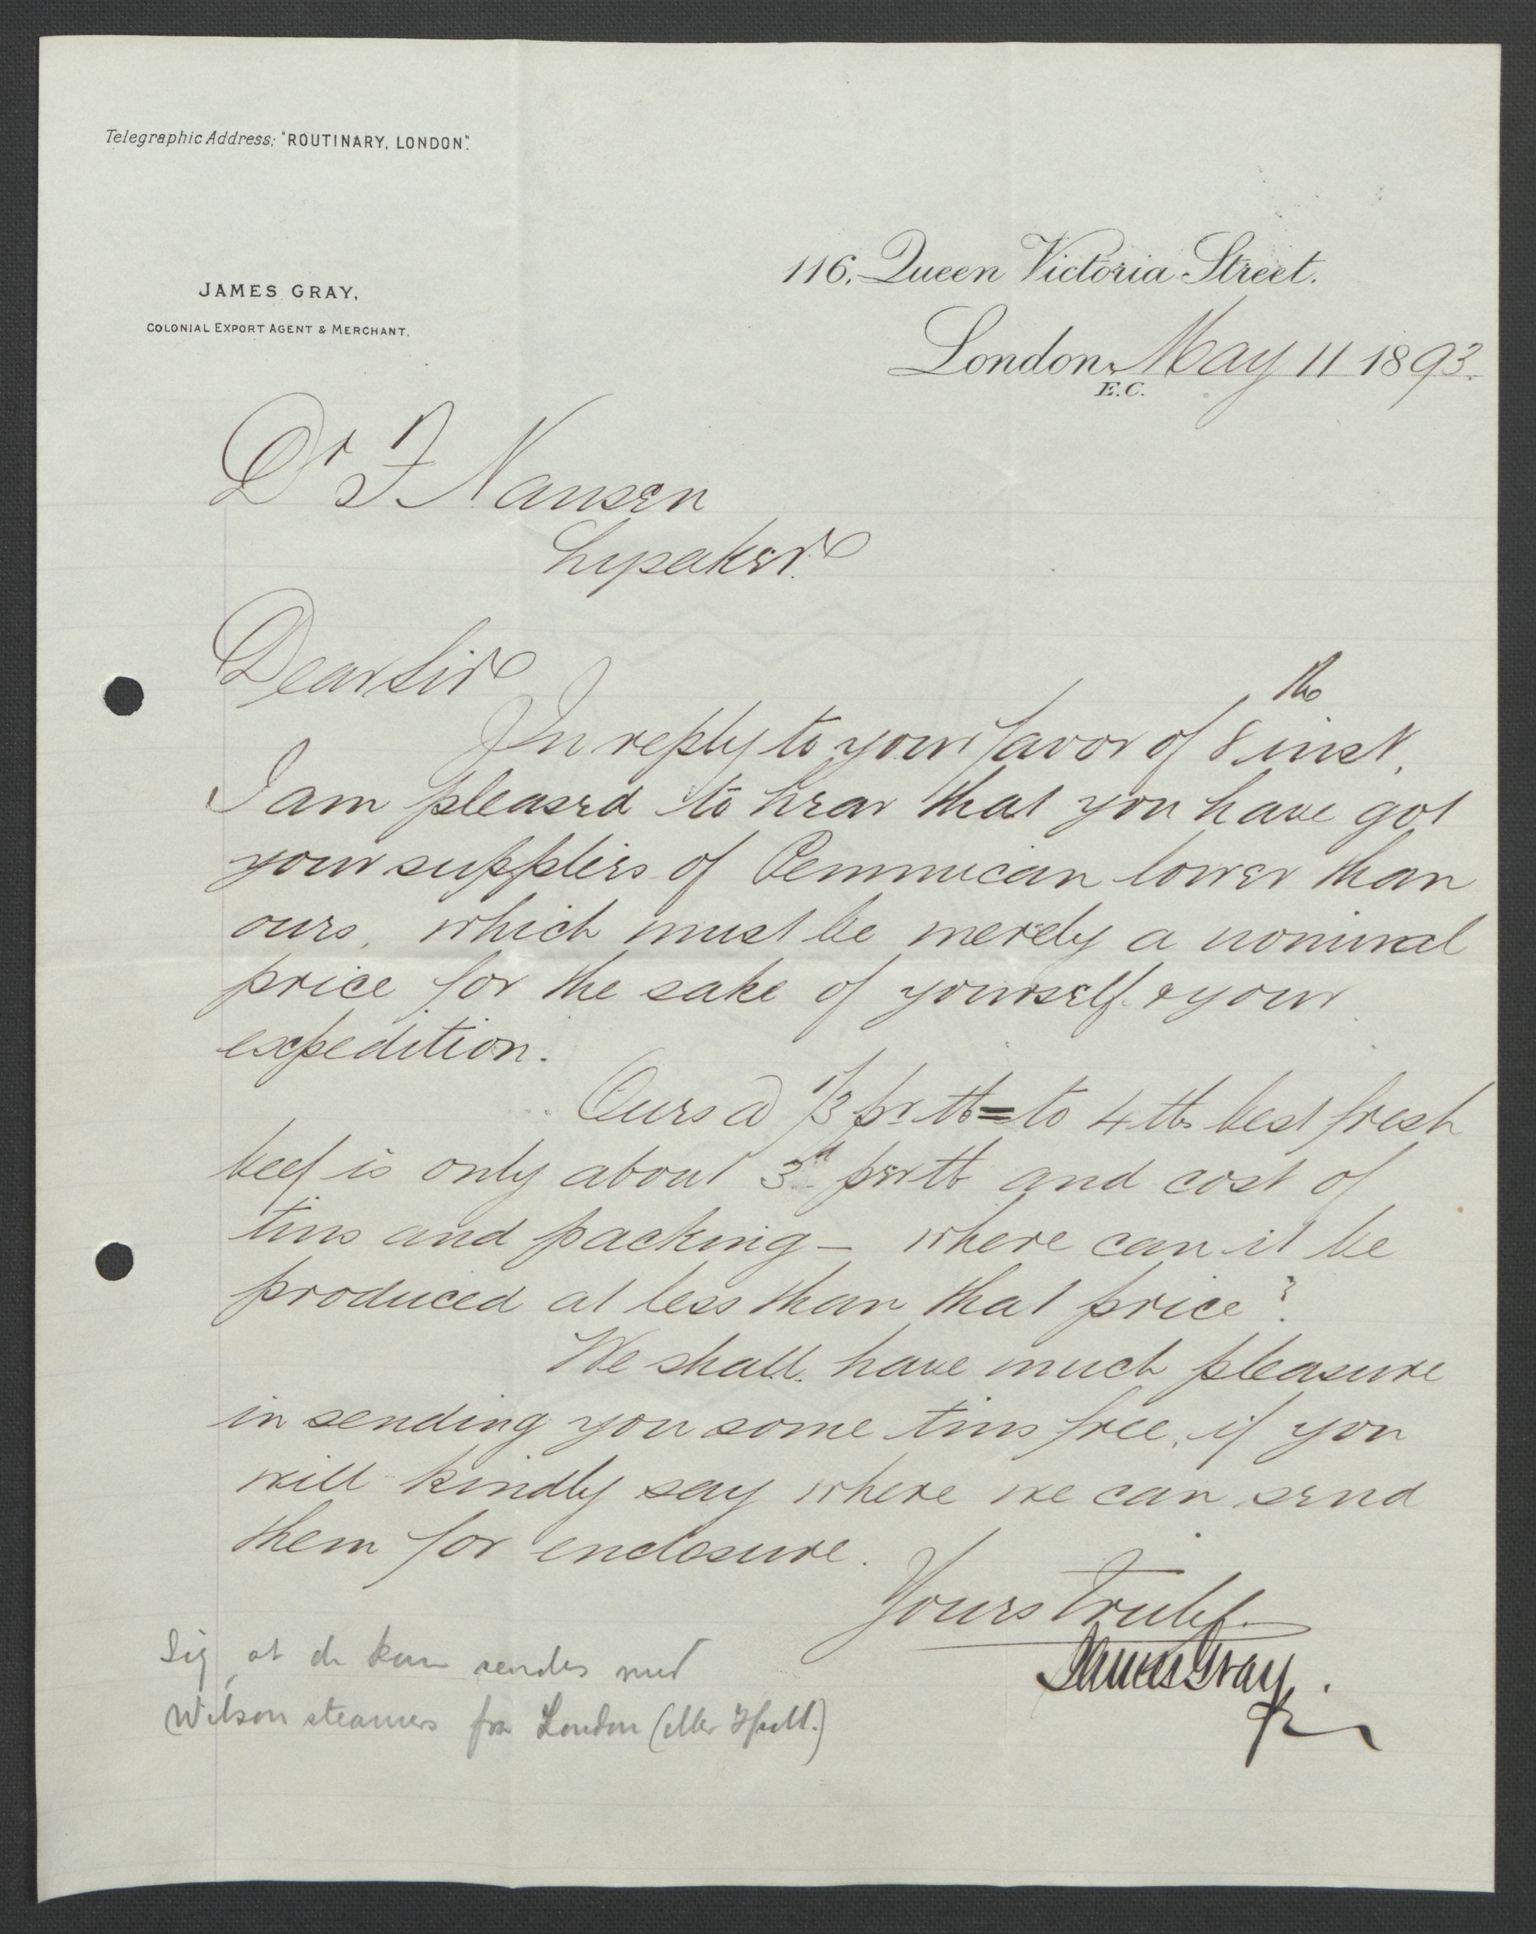 Telegraphic Address: "ROUTINARY, LONDON".
116, Queen Victoria Street.
JAMES GRAY,
COLONIAL EXPORT AGENT & MERCHANT.
London, May 11 1893.
E.C.
Dr F Nansen
Lysaker.
Dear Sir
In reply to your favor of 8th inst,
I am pleased to hear that you have got
your supplies of Pemmican lower than
ours, which must be merely a nominal
price for the sake of yourself & your
expedition.
Ours @ 1/3 pr lb = to 4 lbs best fresh
beef is only about 3d per lb and cost of
tins and packing – where can it be
produced at less than that price?
We shall have much pleasure
in sending you some tins free, if you
will kindly say where we can send
them for enclosure.
Yours truly
James Gray.
Sig at de kan sendes med
Wilson steamers fra London (eller Hull.)